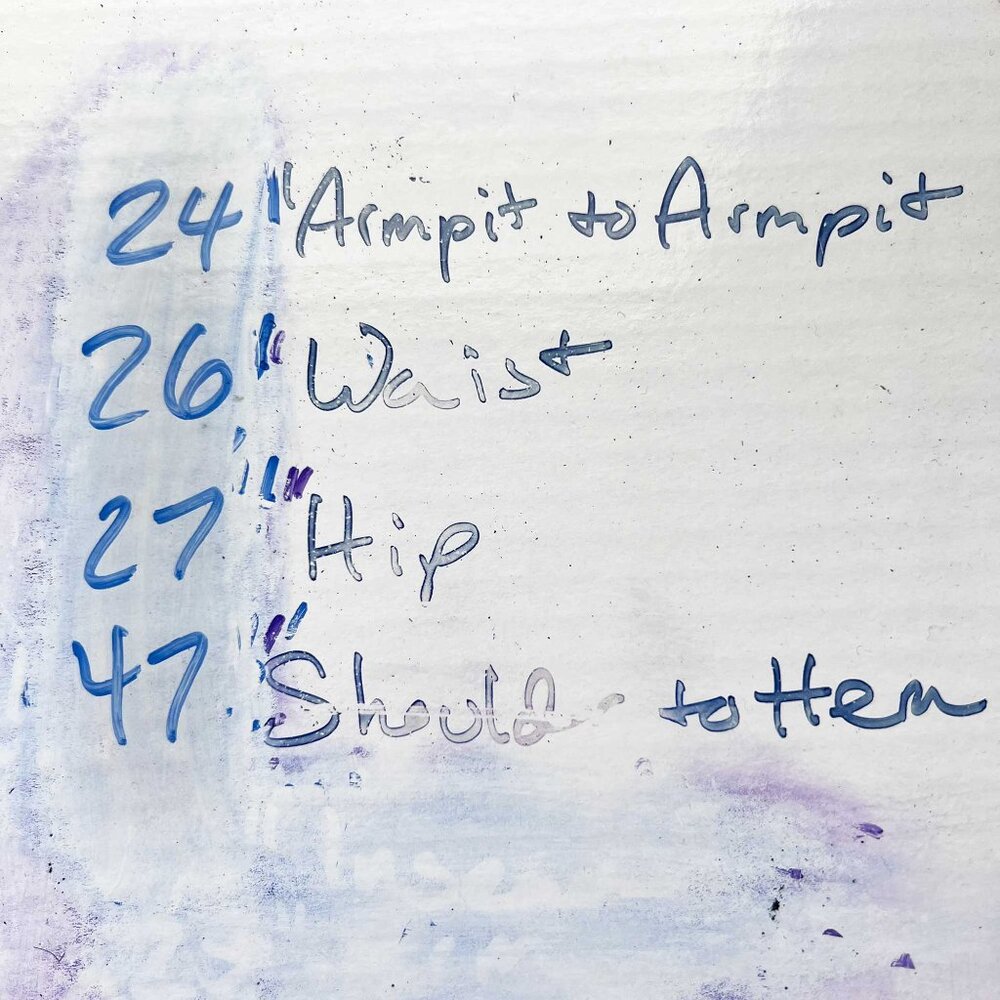 24" Armpit to Armpit
26" Waist
27" Hip
47" Shoulder to Hem